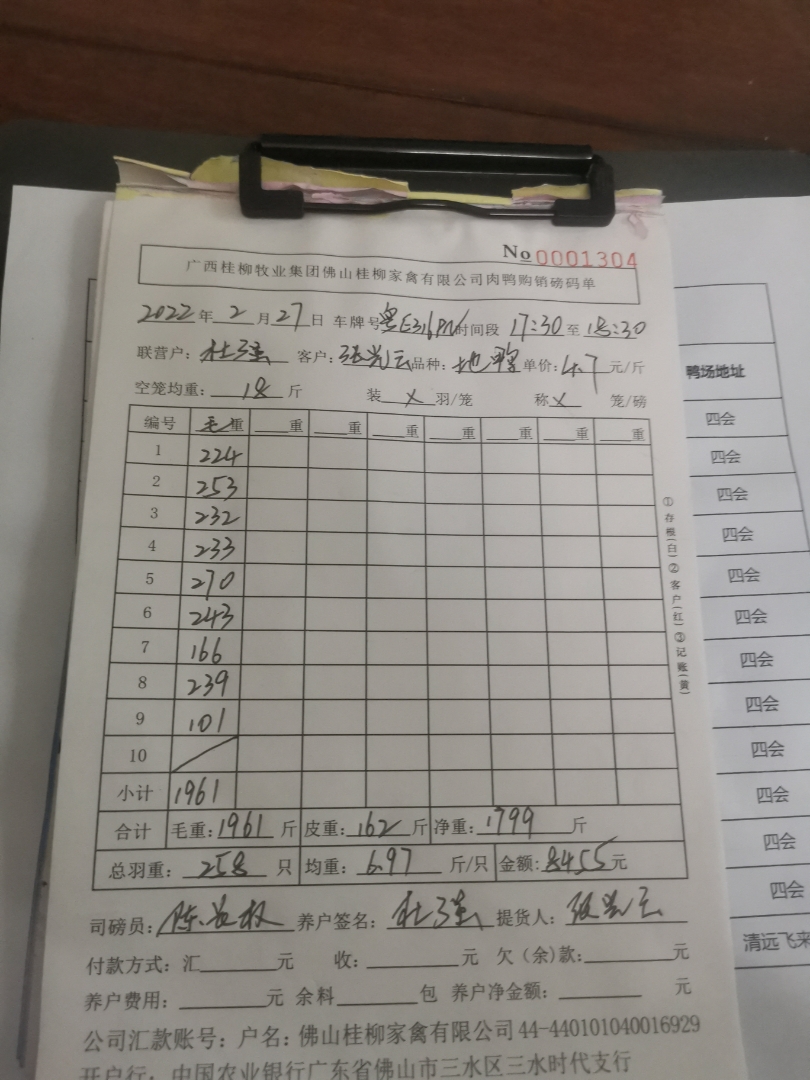 No 0001304
广西桂柳牧业集团佛山桂柳家禽有限公司肉鸭购销磅码单
2022年2月27日 车牌号粤E316PN时间段 17:30至18:30
联营户:杜强 客户:张兴云品种:地鸭单价:4.7元/斤
空笼均重:18斤 装×羽/笼 称×笼/磅
编号 毛重 重 重 重 重 重 重 重
1 224
2 253
3 232
4 233
5 270
6 243
7 166
8 239
9 101
10
小计 1961
合计 毛重:1961斤 皮重:162斤 净重:1799斤
总羽重:258只 均重:6.97斤/只 金额:8455元
司磅员:陈 权 养户签名:杜强 提货人:张兴云
付款方式:汇 元 收: 元 欠(余)款: 元
养户费用: 元 余料 包 养户净金额: 元
公司汇款账号:户名:佛山桂柳家禽有限公司44-440101040016929
开户行:中国农业银行广东省佛山市三水区三水时代支行
①存根(白)②客户(红)③记账(黄)
鸭场地址
四会
四会
四会
四会
四会
四会
四会
四会
四会
四会
四会
四会
清远飞来